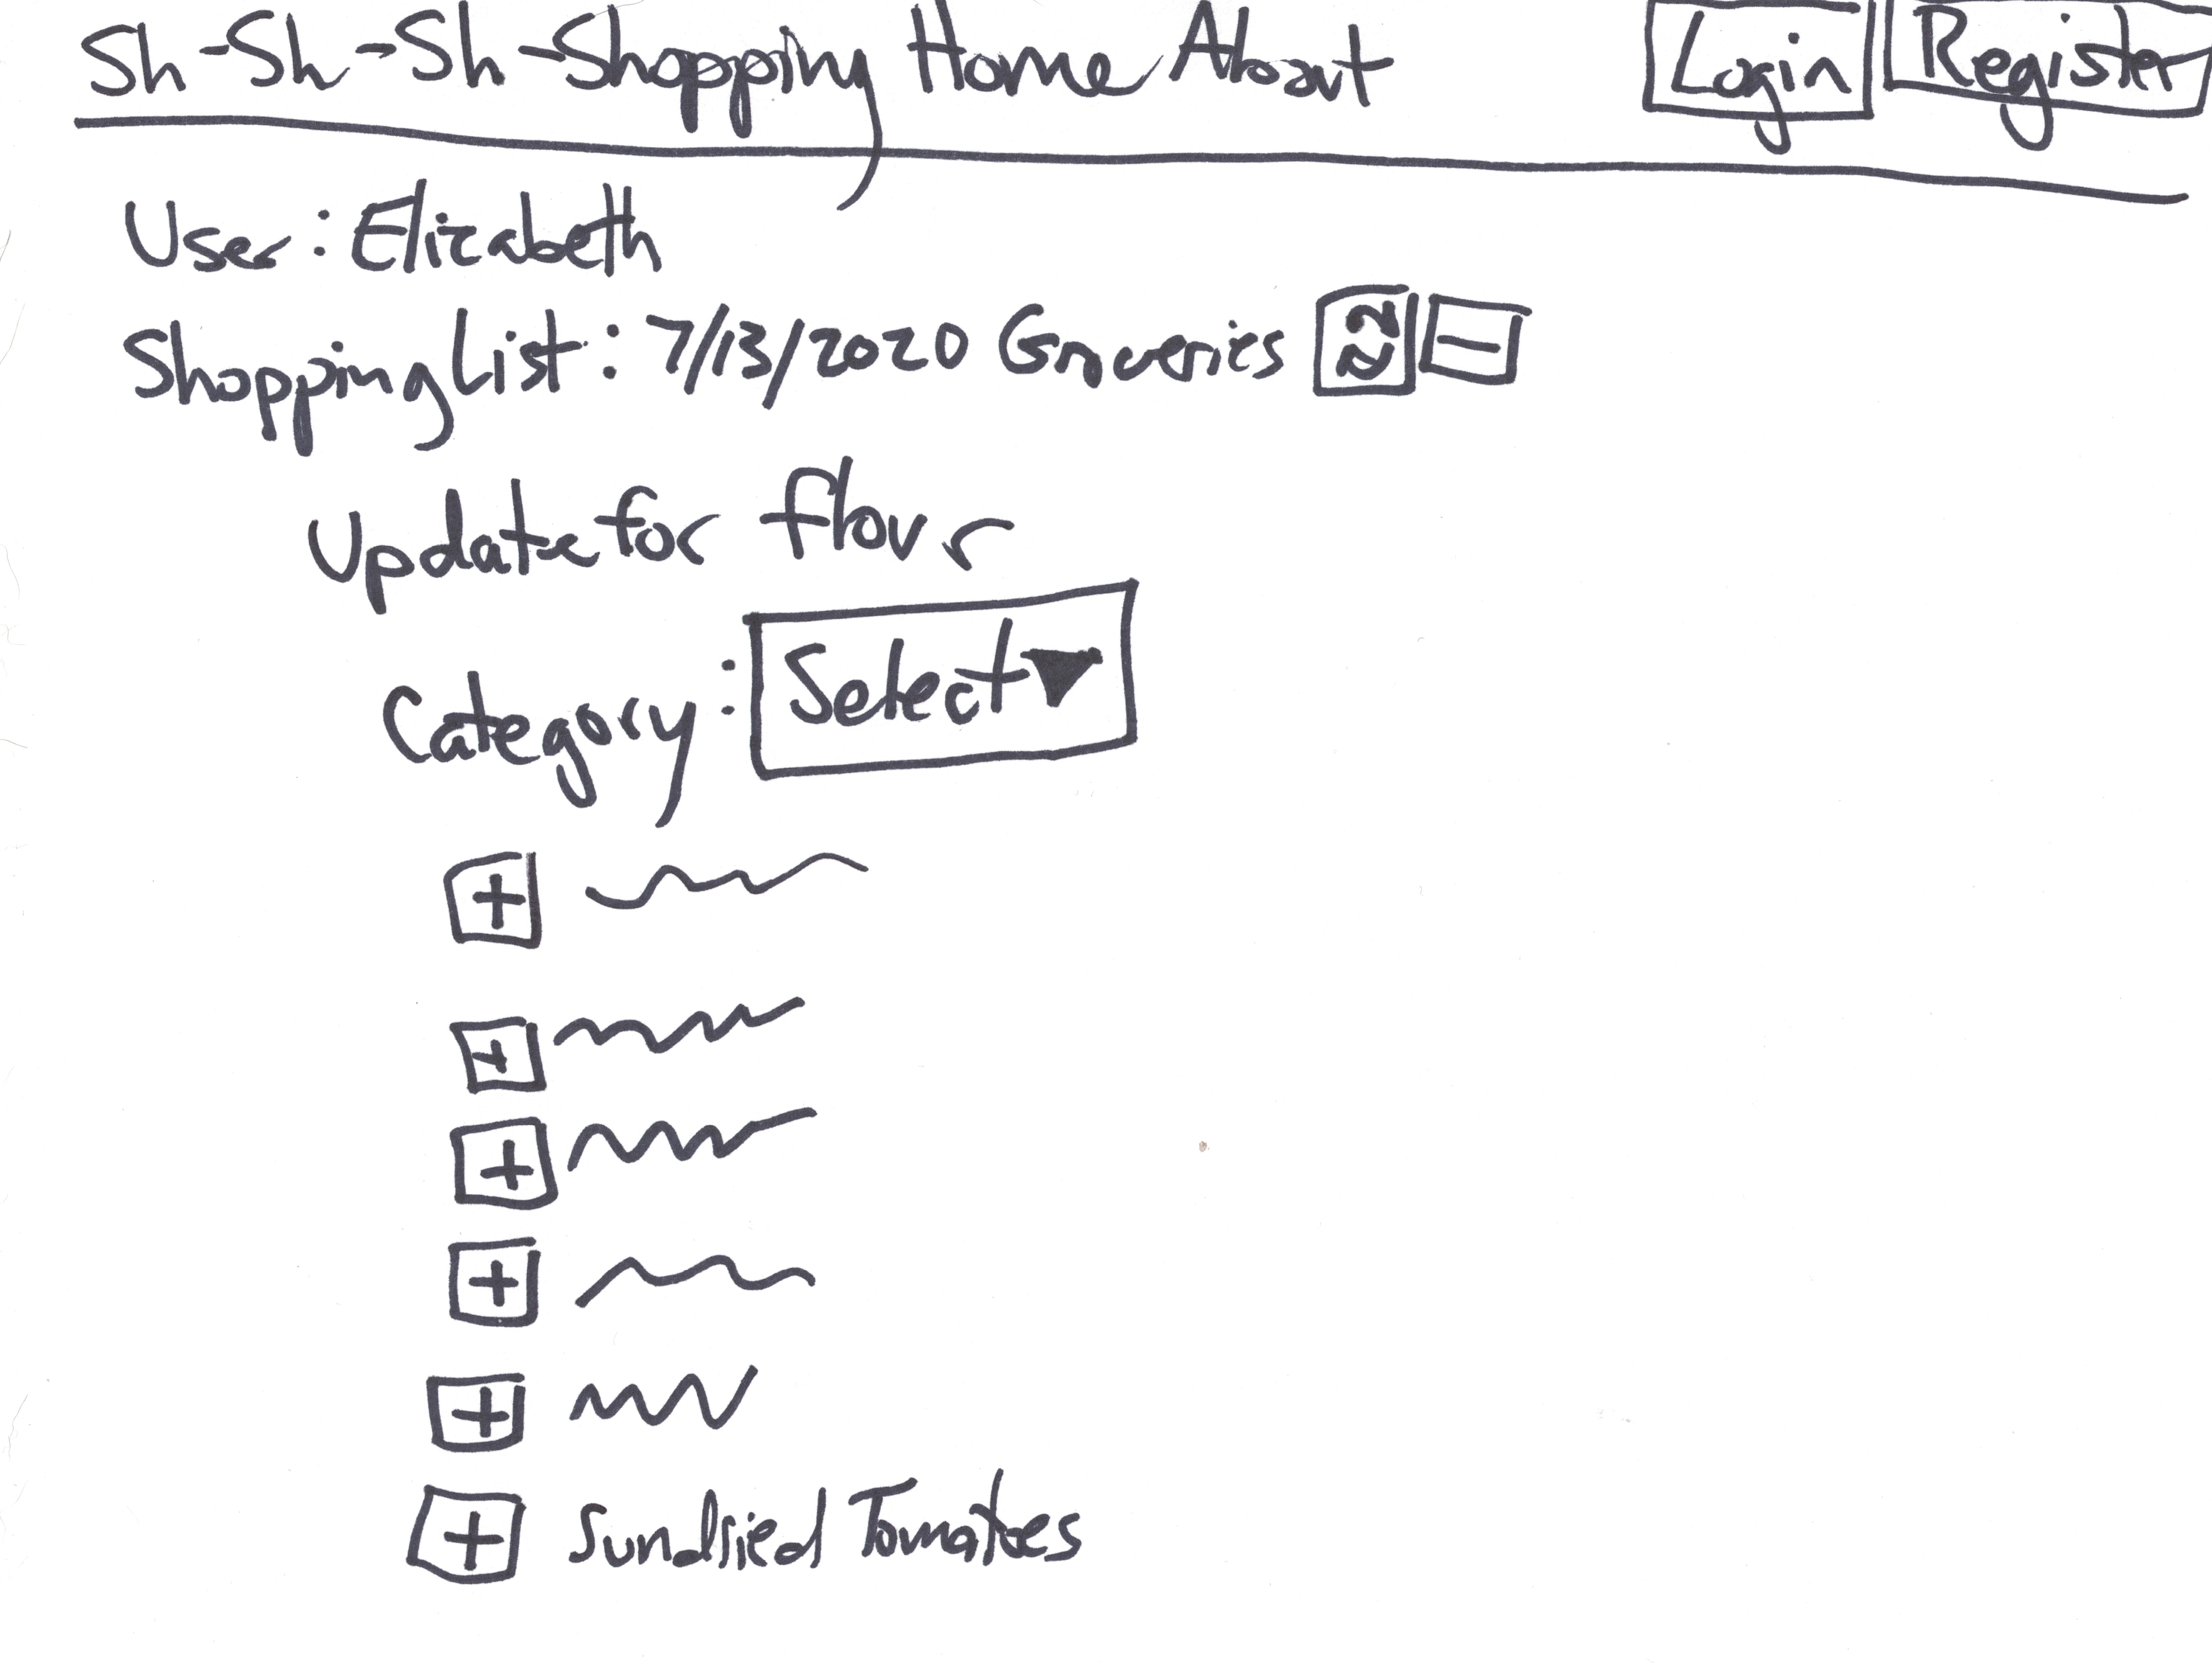 Sh-Sh-Sh-Shopping Home About Login Register
User: Elizabeth
Shopping List: 7/13/2020 Groceries
Update for flour
Category: Select ▼
+
+
+
+
+
+ Sundried Tomatoes